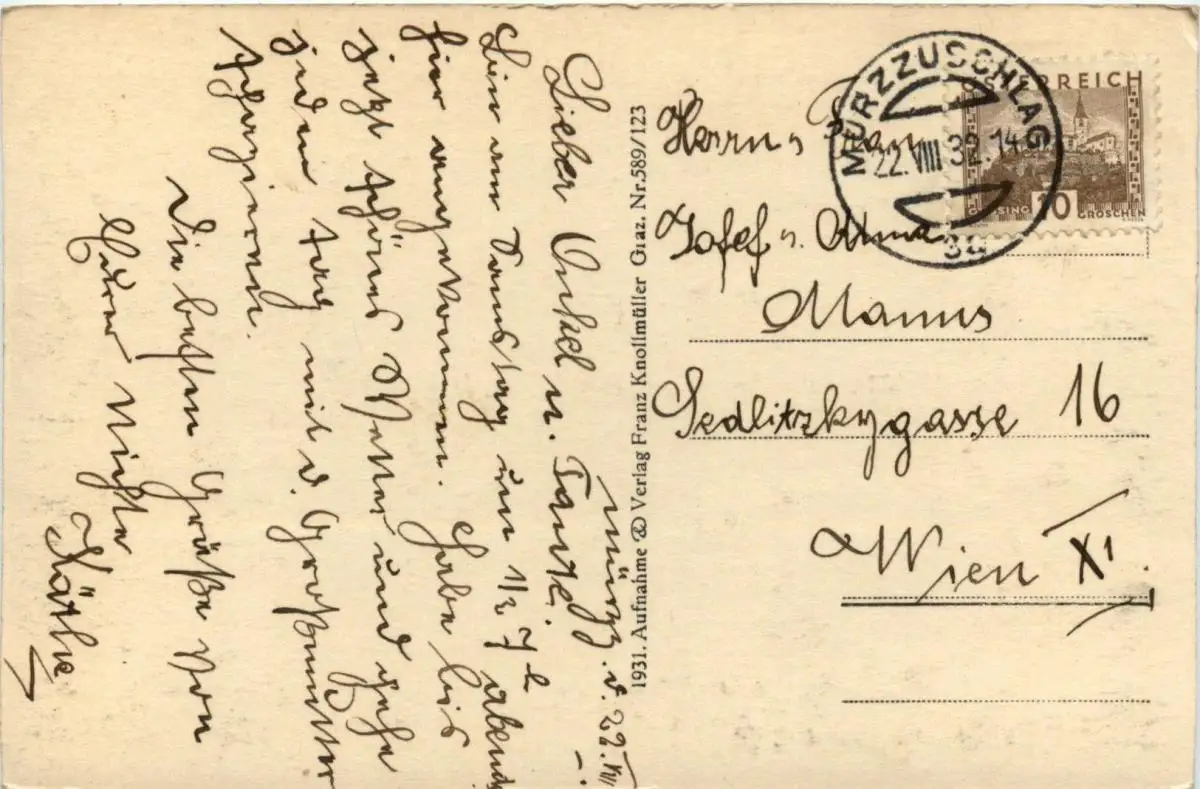 Mürzz. d. 22.VIII
Lieber Onkel u. Tante!
Bin am Samstag um 1/2 7 h abends
hier angekommen. Habe bis
jetzt schönes Wetter und gehe
jeden Tag mit d. Großmutter
spazieren.
Die besten Grüße von
Eurer Nichte
Käthe
1931. Aufnahme & Verlag Franz Knollmüller Graz. Nr. 589/123
MÜRZZUSCHLAG
22.VIII 32. 14
3a
ÖSTERREICH
GÜSSING 10 GROSCHEN
Herrn u Frau
Josef u.
Manus
Sedlitzkygasse 16
Wien XI.